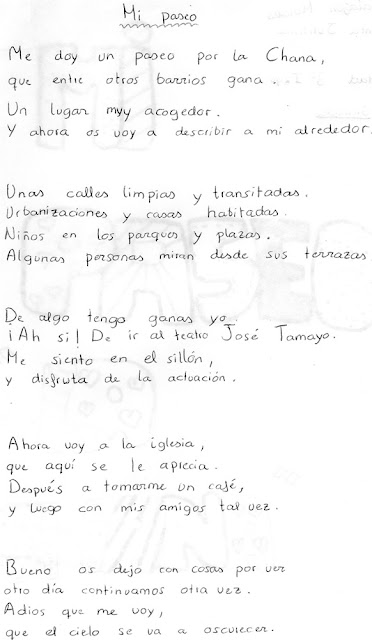 Mi paseo
Me doy un paseo por la Chana,
que entre otros barrios gana.
Un lugar muy acogedor.
Y ahora os voy a describir a mi alrededor.
Unas calles limpias y transitadas.
Urbanizaciones y casas habitadas.
Niños en los parques y plazas.
Algunas personas miran desde sus terrazas
De algo tengo ganas yo.
¡Ah si! De ir al teatro José Tamayo.
Me siento en el sillón,
y disfruta de la actuación.
Ahora voy a la iglesia,
que aquí se le aprecia.
Después a tomarme un café,
y luego con mis amigos tal vez.
Bueno os dejo con cosas por ver
otro día continuamos otra vez.
Adios que me voy,
que el cielo se va a oscurecer.